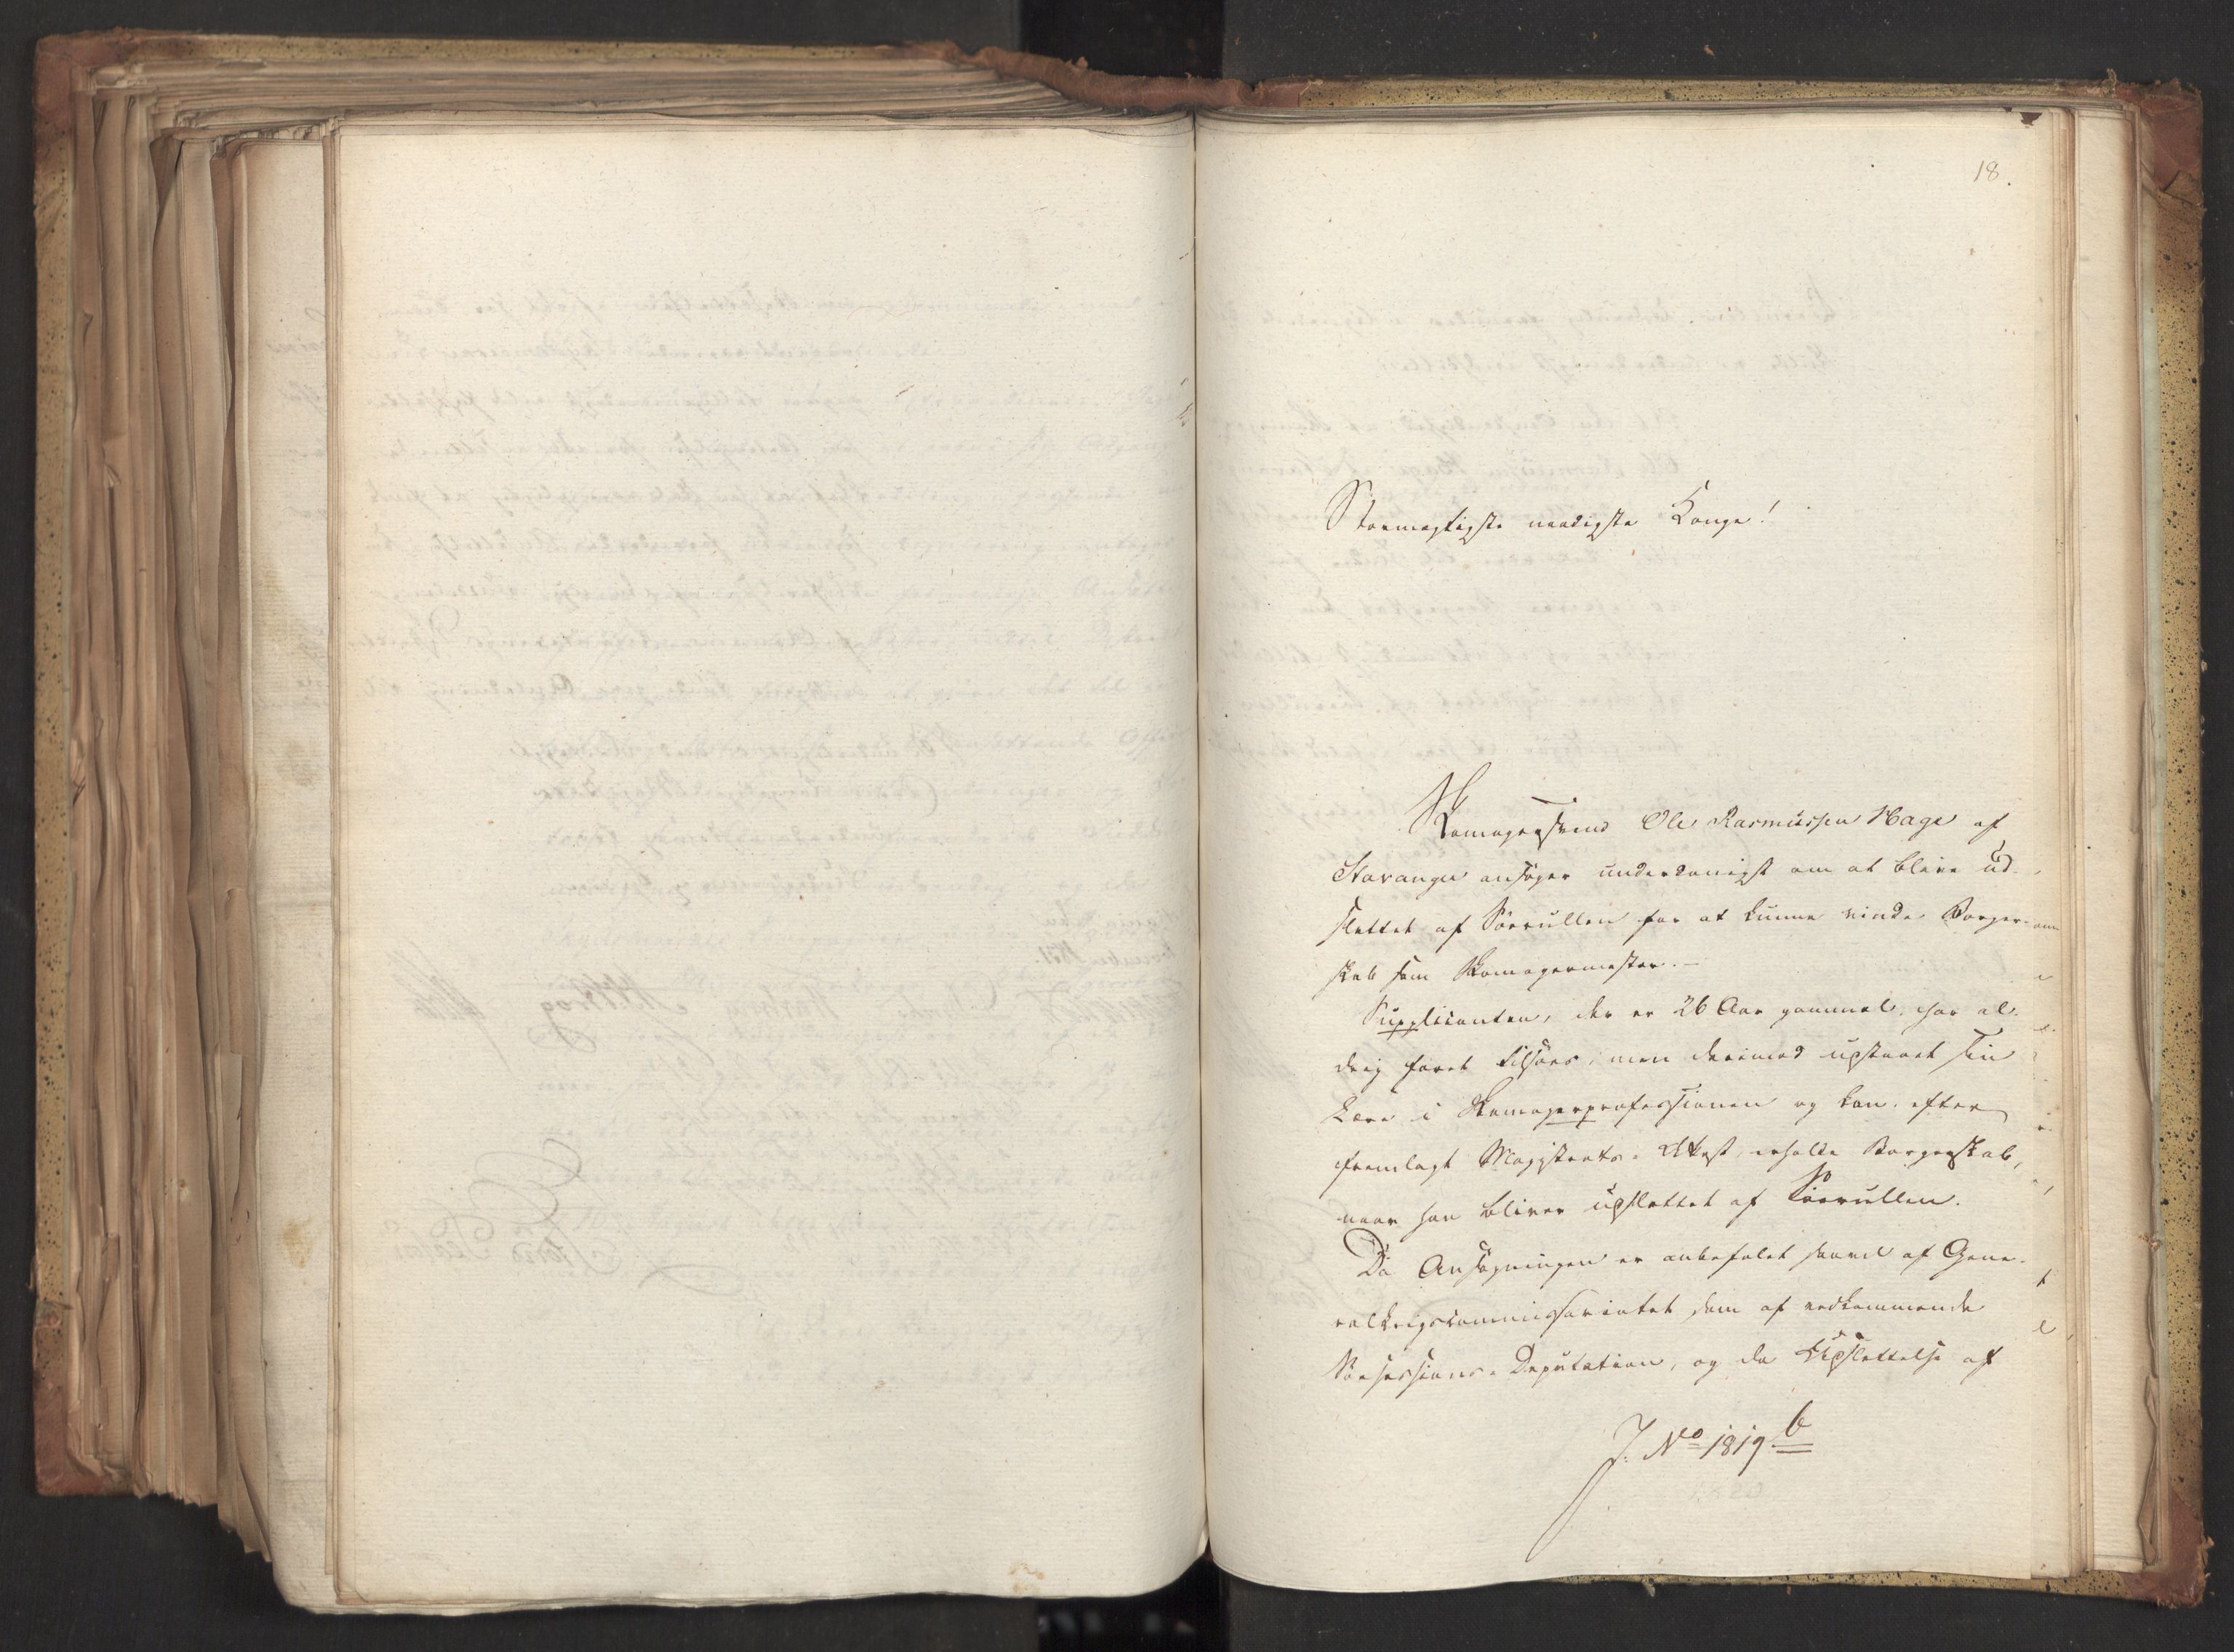 18.
Stormægtigste naadigste Konge!
Skomagersvend Ole Rasmussen Hage af
Stavanger ansøger underdanigst om at blive ud-
slettet af Söerullen for at kunne vinde Borger-
skab som Skomagermester.—
Supplicanten, der er 26 Aar gammel, har al-
drig faret tilsøes, men derimod udstaaet sin
Lære i Skomagerprofessionen og kan, efter
fremlagt Magistrats-Attest, erholde Borgerskab,
naar han bliver udslettet af Söerullen.
Da Ansøgningen er anbefalet saavel af Gene-
ralkrigscommissariatet som af vedkommende
Sessions-Deputation, og da Udslettelse af
J. No 1819 b